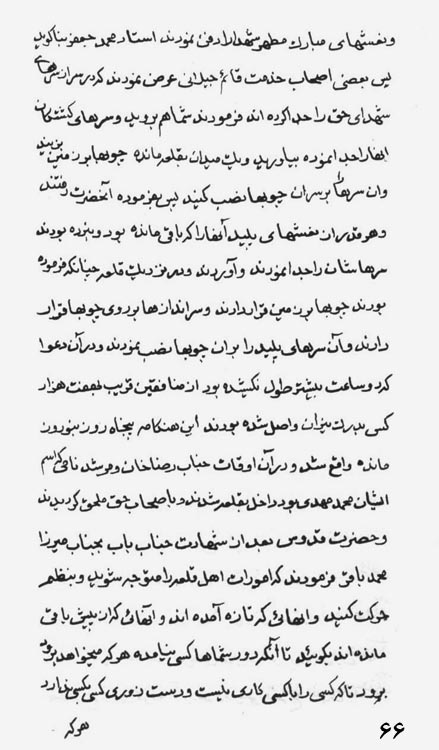 ونعشهای مبارك مطهر شهدا را دفن نمودند استاد محمد جعفر بنا گوید
پس بعضی اصحاب خدمت قائم جیلانی عرض نمودند که سرا سرهای
شهدای حق را جدا کرده اند فرمودند شما هم بروید و سرهای کشتگان
انها را جدا نموده بیاورید و یك میدان بقلعه مانده چوبها بر زمین بزنید
وان سرها بر سران چوبها نصب کنید پس بفرموده آنحضرت رفتند
و هر قدر از نعشهای پلید آنها را که باقی مانده بود و نبرده بودند
سرهاشان را جدا نمودند و آوردند و در نزدیك قلعه چنانکه فرموده
بودند چوبها بر زمین قرار دادند و سر اندازها بر روی چوبها قرار
دادند و آن سرهای پلید را بر ان چوبها نصب نمودند و در آن دعوا
که دو ساعت بیشتر طول نکشیده بود از منافقین قریب بهفت هزار
کس بدرك نیران واصل شده بودند این هنکامه پنجاه روز بنوروز
مانده واقع شد و در آن اوقات جناب رضا خان و مرشد نامی که اسم
ایشان محمد مهدی بود داخل بقلعه شدند و با صحاب حق ملحق کردیدند
و حضرت قدوس بعد از شهادت جناب باب بجناب میرزا
محمد باقر فرمودند که امورات اهل قلعه را متوجه شوید و بنظم
حرکت کنید و انهائی که تازه آمده اند و انهائی که از پیش باقی
مانده اند بگوئید تا آنکه در شماها کسی بنا مده هر که میخواهد برود
برود تا که کسی را با کسی کاری نیست و دست زوری کسی بکسی ندارد
هر که
۶۶